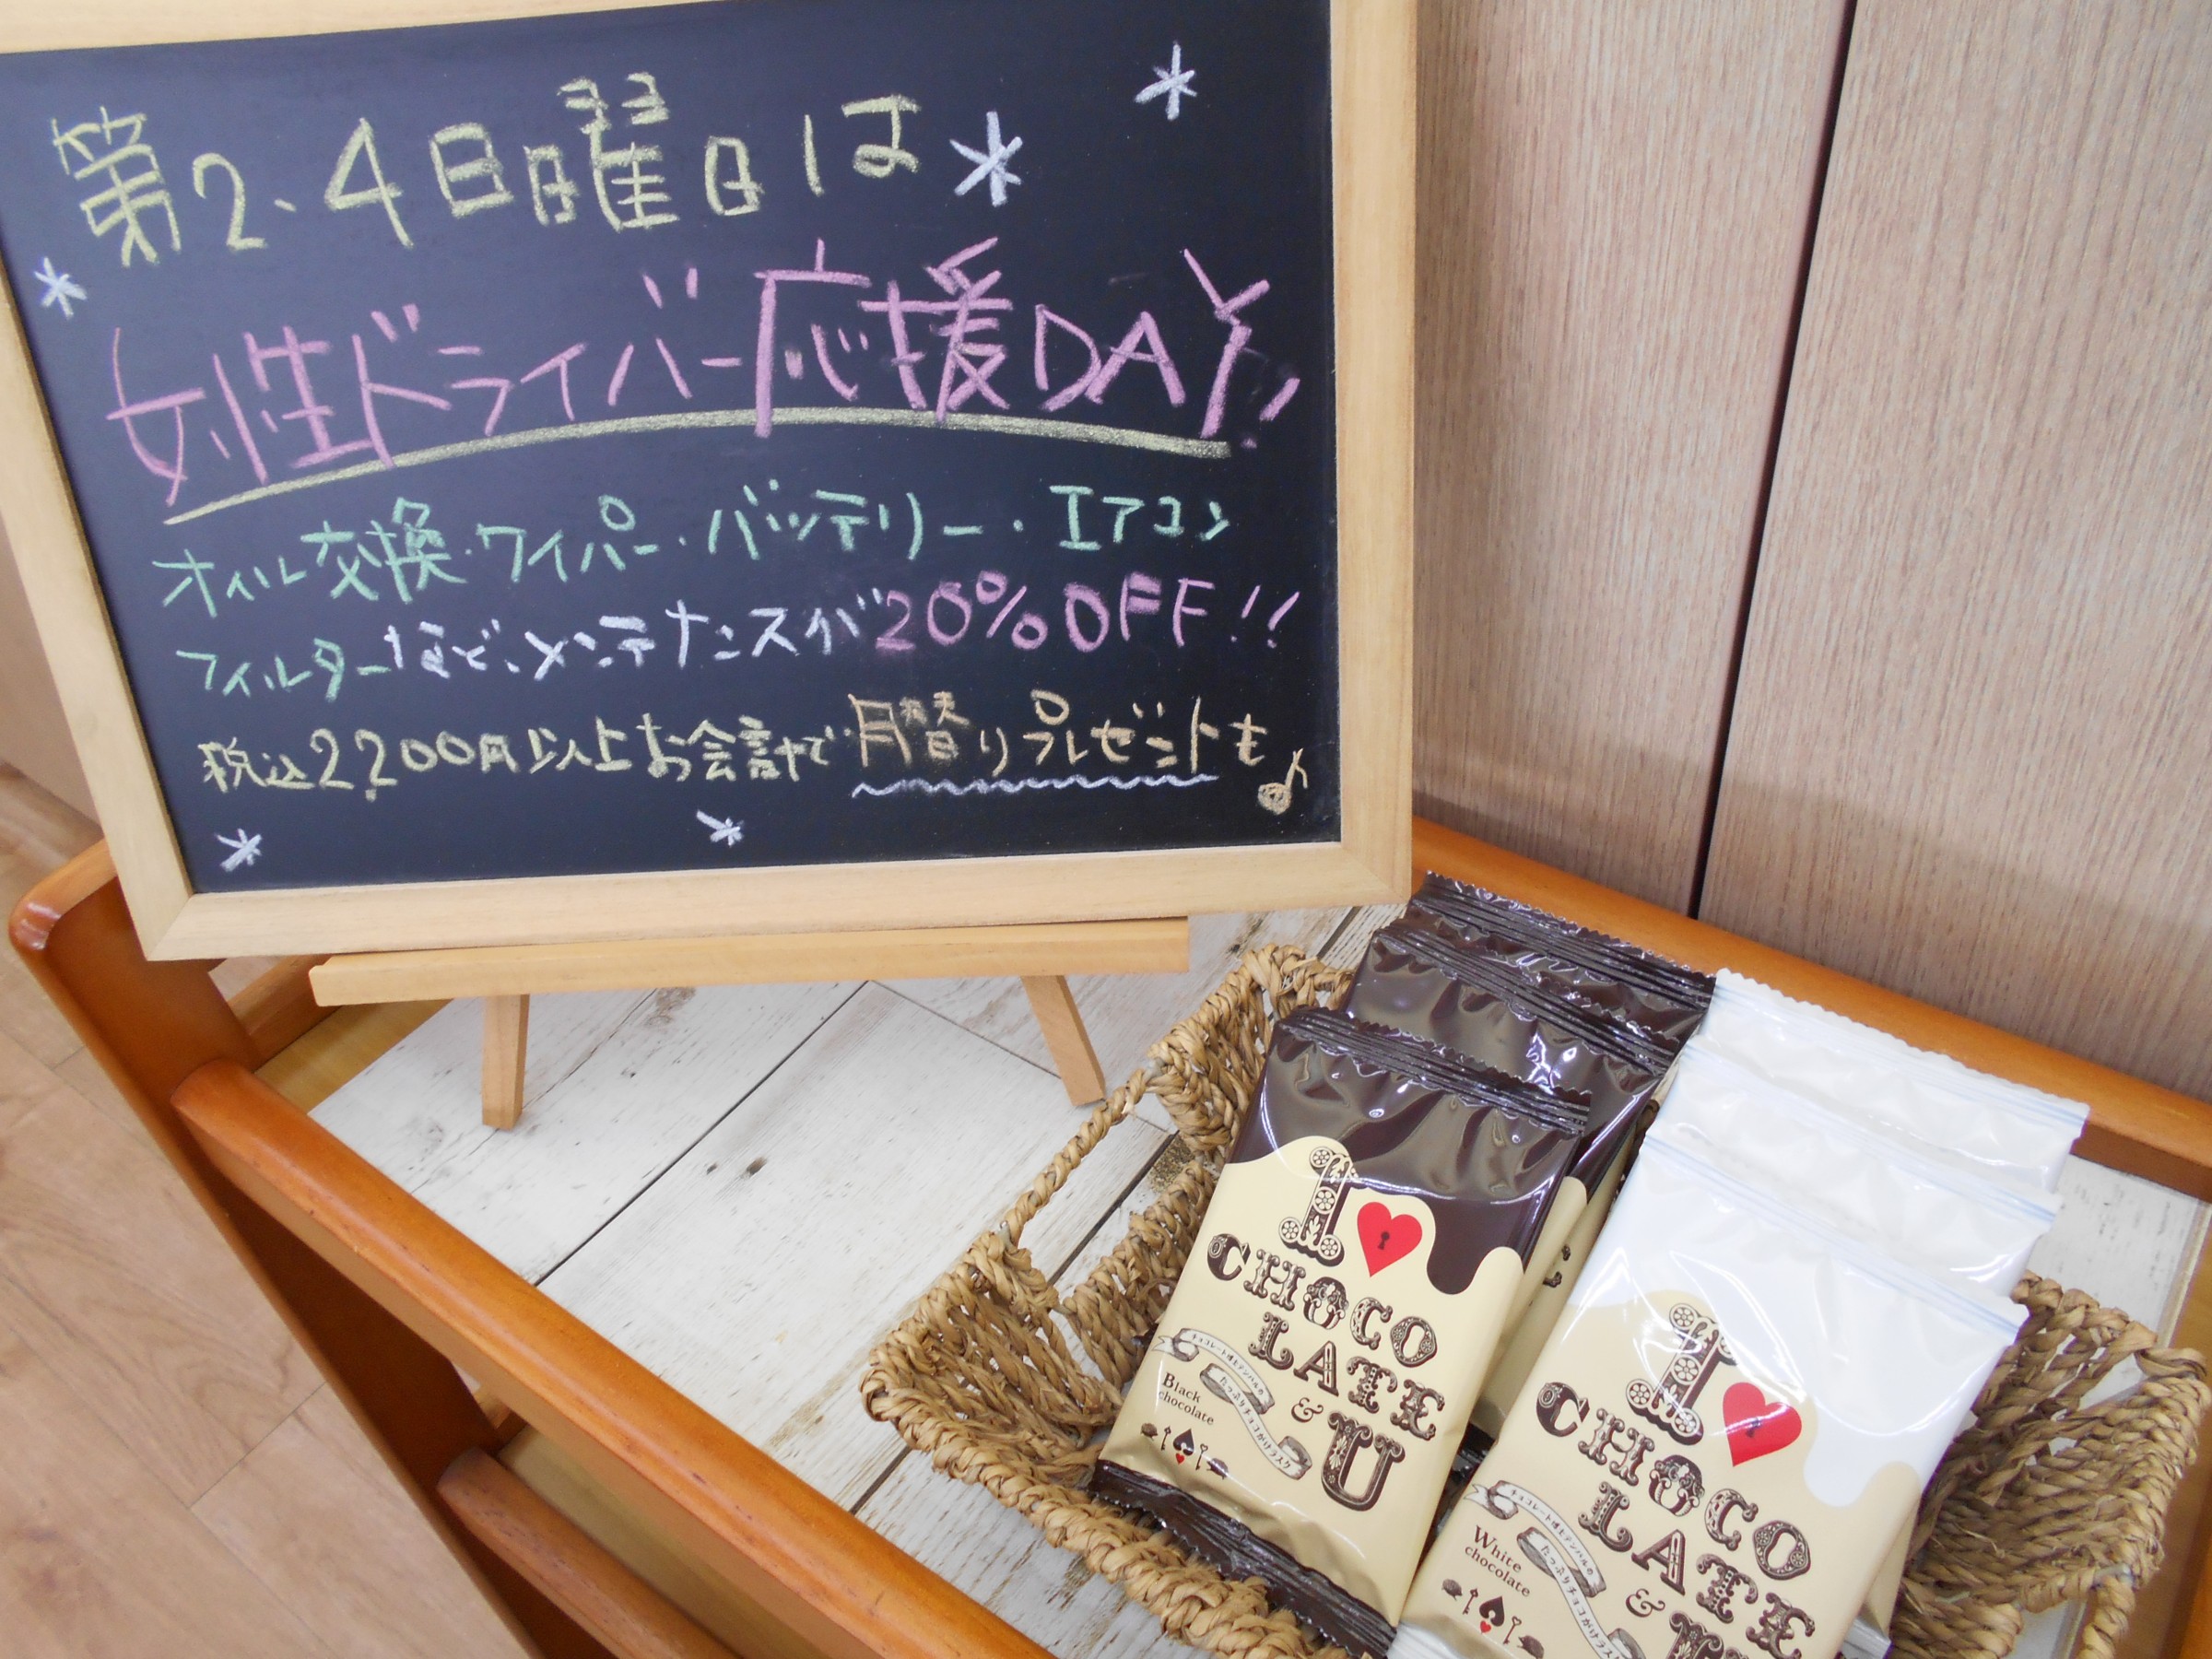 第2・4日曜日は
女性ドライバー応援DAY!
オイル交換・ワイパー・バッテリー・エアコン
フィルターなど、メンテナンスが20%OFF!!
税込2,200円以上お会計で月替りプレゼントも♪
I♥
CHOCO
LATE
&U
チョコレート博士テンパルの
たっぷりチョコがけラスク
Black
chocolate
I♥
CHOCO
LATE
&U
チョコレート博士テンパルの
たっぷりチョコがけラスク
White
chocolate